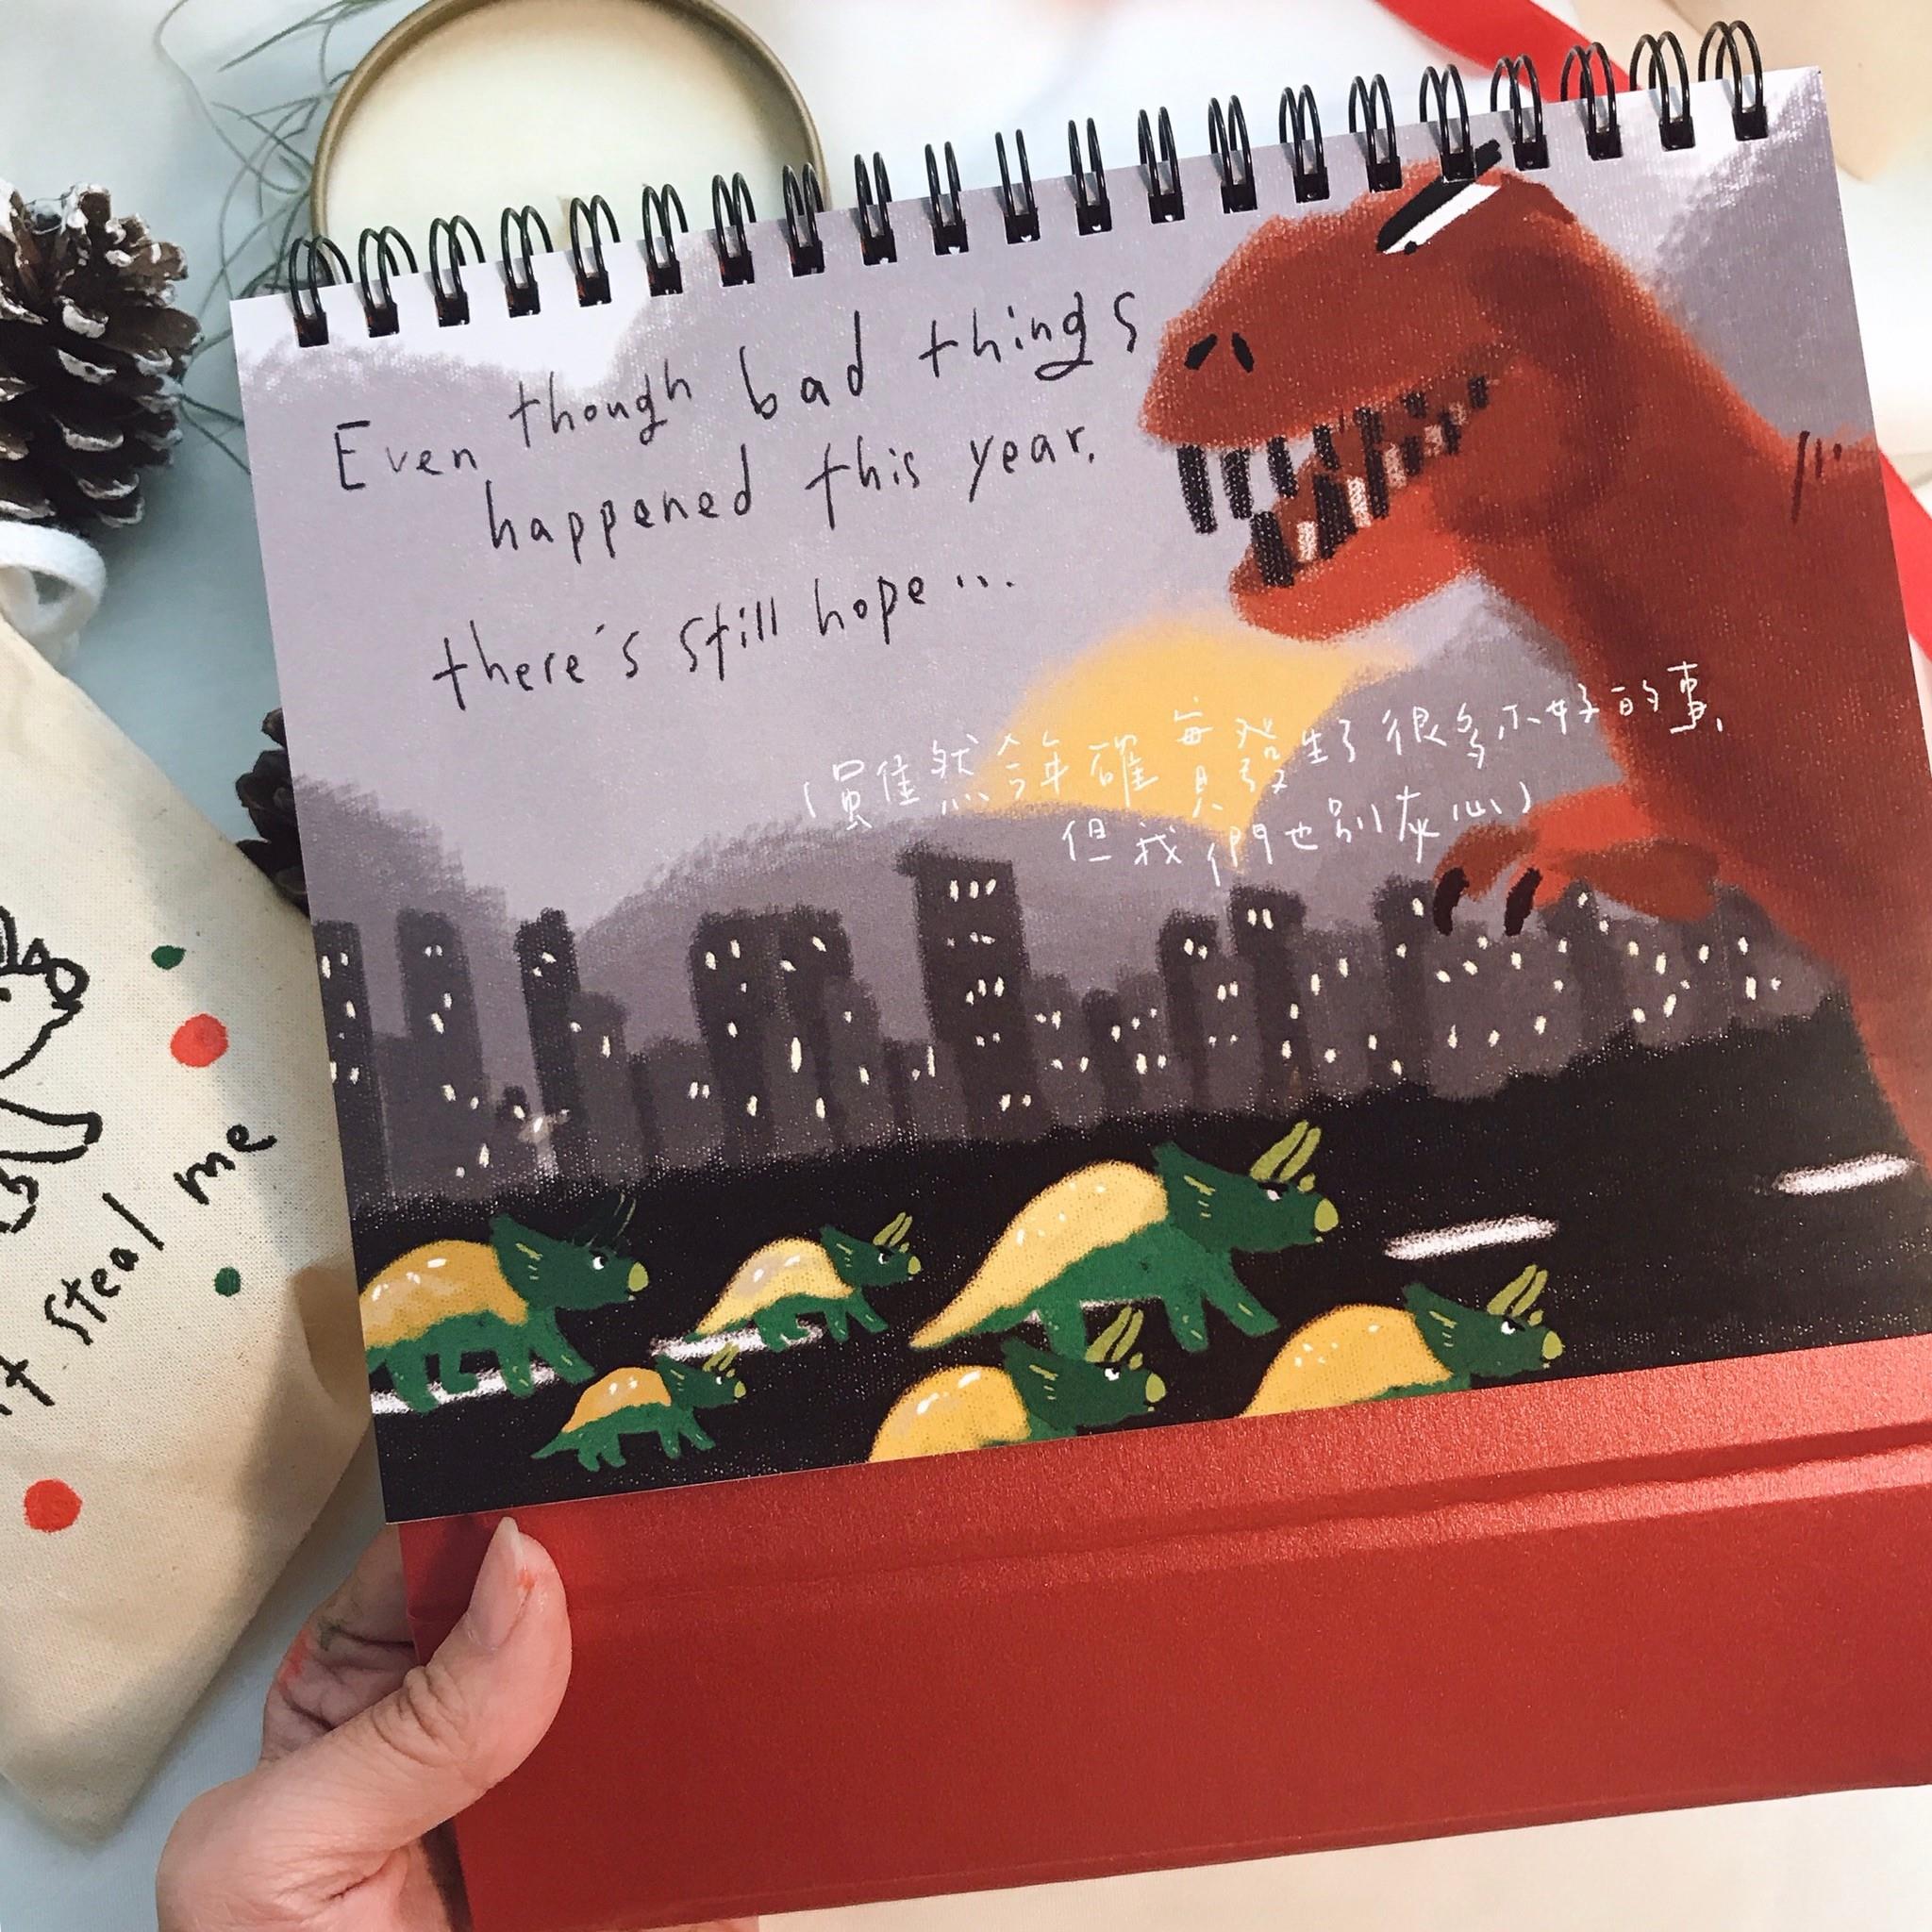 Even though bad things
happened this year.
there's still hope...
(雖然今年確真發生了很多不好的事,
但我們也別灰心)
steal me